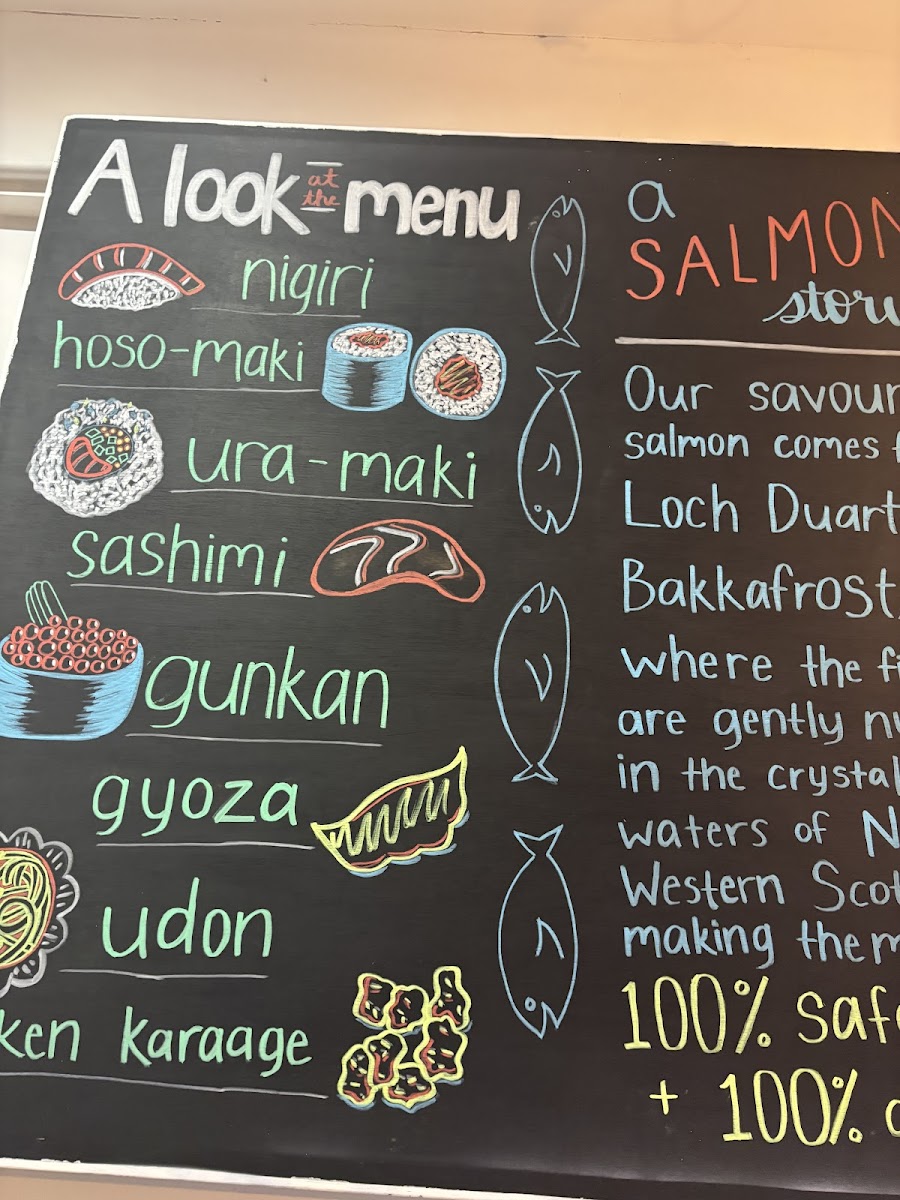 A look at the menu
nigiri
hoso-maki
ura-maki
sashimi
gunkan
gyoza
udon
karaage
a
SALMON
Our
salmon comes
Loch
Bakkafrost,
where the
are gently
in the
waters of
Western
making them
100%
+ 100%